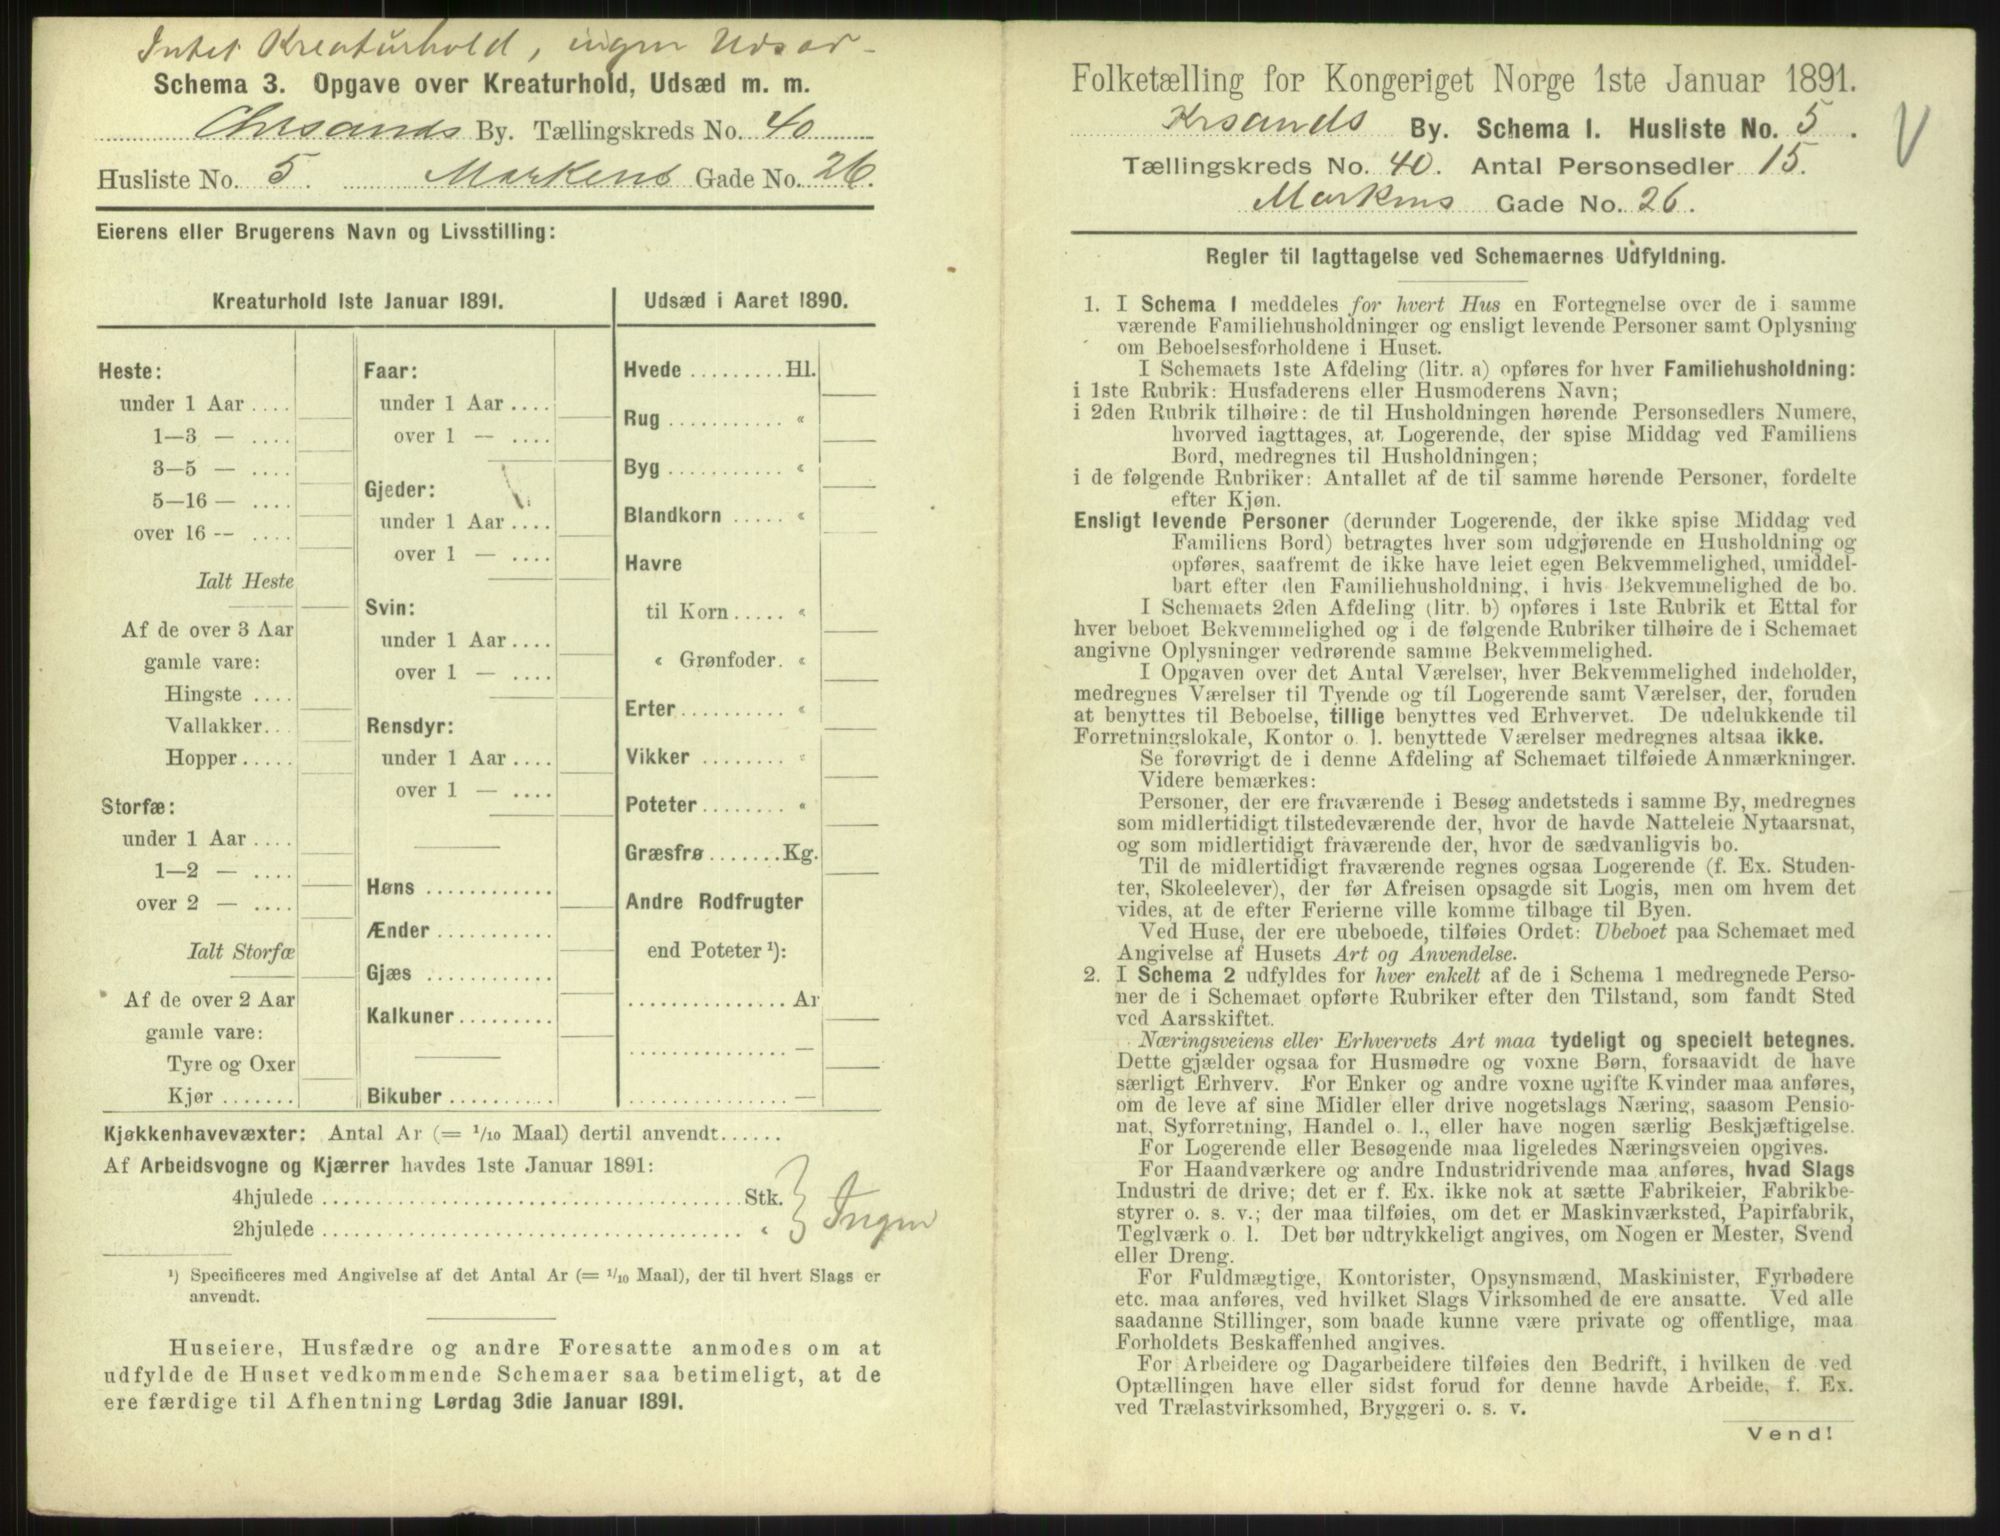 Intet Kreaturhold, ingen Udsæd
Schema 3. Opgave over Kreaturhold, Udsæd m. m.
Chrsands By. Tællingskreds No. 40
Husliste No. 5. Markens Gade No. 26.
Eierens eller Brugerens Navn og Livsstilling:
Kreaturhold 1ste Januar 1891.
Heste:
under 1 Aar ....
1—3 — ....
3—5 — ....
5—16 — ....
over 16 — ....
Ialt Heste
Af de over 3 Aar
gamle vare:
Hingste ....
Vallakker...
Hopper.....
Storfæ:
under 1 Aar ....
1—2 — ....
over 2 — ....
Ialt Storfæ
Af de over 2 Aar
gamle vare:
Tyre og Oxer
Kjør.......
Faar:
under 1 Aar ....
over 1 — ....
Gjeder:
under 1 Aar ....
over 1 — ....
Svin:
under 1 Aar ....
over 1 — ....
Rensdyr:
under 1 Aar ....
over 1 — ....
Høns ...........
Ænder...........
Gjæs ...........
Kalkuner.........
Bikuber..........
Udsæd i Aaret 1890.
Hvede .........Hl.
Rug ........... «
Byg ........... «
Blandkorn ..... «
Havre
til Korn..... «
« Grønfoder. «
Erter.......... «
Vikker ........ «
Poteter........ «
Græsfrø.......Kg.
Andre Rodfrugter
end Poteter ¹):
...............Ar
............... —
............... —
Kjøkkenhavevæxter: Antal Ar (= 1/10 Maal) dertil anvendt......
Af Arbeidsvogne og Kjærrer havdes 1ste Januar 1891:
4hjulede ....................................... Stk.
2hjulede ....................................... «
Ingen
¹) Specificeres med Angivelse af det Antal Ar (= 1/10 Maal), der til hvert Slags er
anvendt.
Huseiere, Husfædre og andre Foresatte anmodes om at
udfylde de Huset vedkommende Schemaer saa betimeligt, at de
ere færdige til Afhentning Lørdag 3die Januar 1891.
Folketælling for Kongeriget Norge 1ste Januar 1891.
Krsands By. Schema 1. Husliste No. 5.
Tællingskreds No. 40. Antal Personsedler 15.
Markens Gade No. 26.
Regler til Iagttagelse ved Schemaernes Udfyldning.
1. I Schema 1 meddeles for hvert Hus en Fortegnelse over de i samme
værende Familiehusholdninger og ensligt levende Personer samt Oplysning
om Beboelsesforholdene i Huset.
I Schemaets 1ste Afdeling (litr. a) opføres for hver Familiehusholdning:
i 1ste Rubrik: Husfaderens eller Husmoderens Navn;
i 2den Rubrik tilhøire: de til Husholdningen hørende Personsedlers Numere,
hvorved iagttages, at Logerende, der spise Middag ved Familiens
Bord, medregnes til Husholdningen;
i de følgende Rubriker: Antallet af de til samme hørende Personer, fordelte
efter Kjøn.
Ensligt levende Personer (derunder Logerende, der ikke spise Middag ved
Familiens Bord) betragtes hver som udgjørende en Husholdning og
opføres, saafremt de ikke have leiet egen Bekvemmelighed, umiddel-
bart efter den Familiehusholdning, i hvis Bekvemmelighed de bo.
I Schemaets 2den Afdeling (litr. b) opføres i 1ste Rubrik et Ettal for
hver beboet Bekvemmelighed og i de følgende Rubriker tilhøire de i Schemaet
angivne Oplysninger vedrørende samme Bekvemmelighed.
I Opgaven over det Antal Værelser, hver Bekvemmelighed indeholder,
medregnes Værelser til Tyende og til Logerende samt Værelser, der, foruden
at benyttes til Beboelse, tillige benyttes ved Erhvervet. De udelukkende til
Forretningslokale, Kontor o. l. benyttede Værelser medregnes altsaa ikke.
Se forøvrigt de i denne Afdeling af Schemaet tilføiede Anmærkninger.
Videre bemærkes:
Personer, der ere fraværende i Besøg andetsteds i samme By, medregnes
som midlertidigt tilstedeværende der, hvor de havde Natteleie Nytaarsnat,
og som midlertidigt fraværende der, hvor de sædvanligvis bo.
Til de midlertidigt fraværende regnes ogsaa Logerende (f. Ex. Studen-
ter, Skoleelever), der før Afreisen opsagde sit Logis, men om hvem det
vides, at de efter Ferierne ville komme tilbage til Byen.
Ved Huse, der ere ubeboede, tilføies Ordet: Ubeboet paa Schemaet med
Angivelse af Husets Art og Anvendelse.
2. I Schema 2 udfyldes for hver enkelt af de i Schema 1 medregnede Perso-
ner de i Schemaet opførte Rubriker efter den Tilstand, som fandt Sted
ved Aarsskiftet.
Næringsveiens eller Erhvervets Art maa tydeligt og specielt betegnes.
Dette gjælder ogsaa for Husmødre og voxne Børn, forsaavidt de have
særligt Erhverv. For Enker og andre voxne ugifte Kvinder maa anføres,
om de leve af sine Midler eller drive nogetslags Næring, saasom Pensio-
nat, Syforretning, Handel o. l., eller have nogen særlig Beskjæftigelse.
For Logerende eller Besøgende maa ligeledes Næringsveien opgives.
For Haandværkere og andre Industridrivende maa anføres, hvad Slags
Industri de drive; det er f. Ex. ikke nok at sætte Fabrikeier, Fabrikbe-
styrer o. s. v.; der maa tilføies, om det er Maskinværksted, Papirfabrik,
Teglværk o. l. Det bør udtrykkeligt angives, om Nogen er Mester, Svend
eller Dreng.
For Fuldmægtige, Kontorister, Opsynsmænd, Maskinister, Fyrbødere
etc. maa anføres, ved hvilket Slags Virksomhed de ere ansatte. Ved alle
saadanne Stillinger, som baade kunne være private og offentlige, maa
Forholdets Beskaffenhed angives.
For Arbeidere og Dagarbeidere tilføies den Bedrift, i hvilken de ved
Optællingen have eller sidst forud for denne havde Arbeide, f. Ex.
ved Trælastvirksomhed, Bryggeri o. s. v.
Vend!